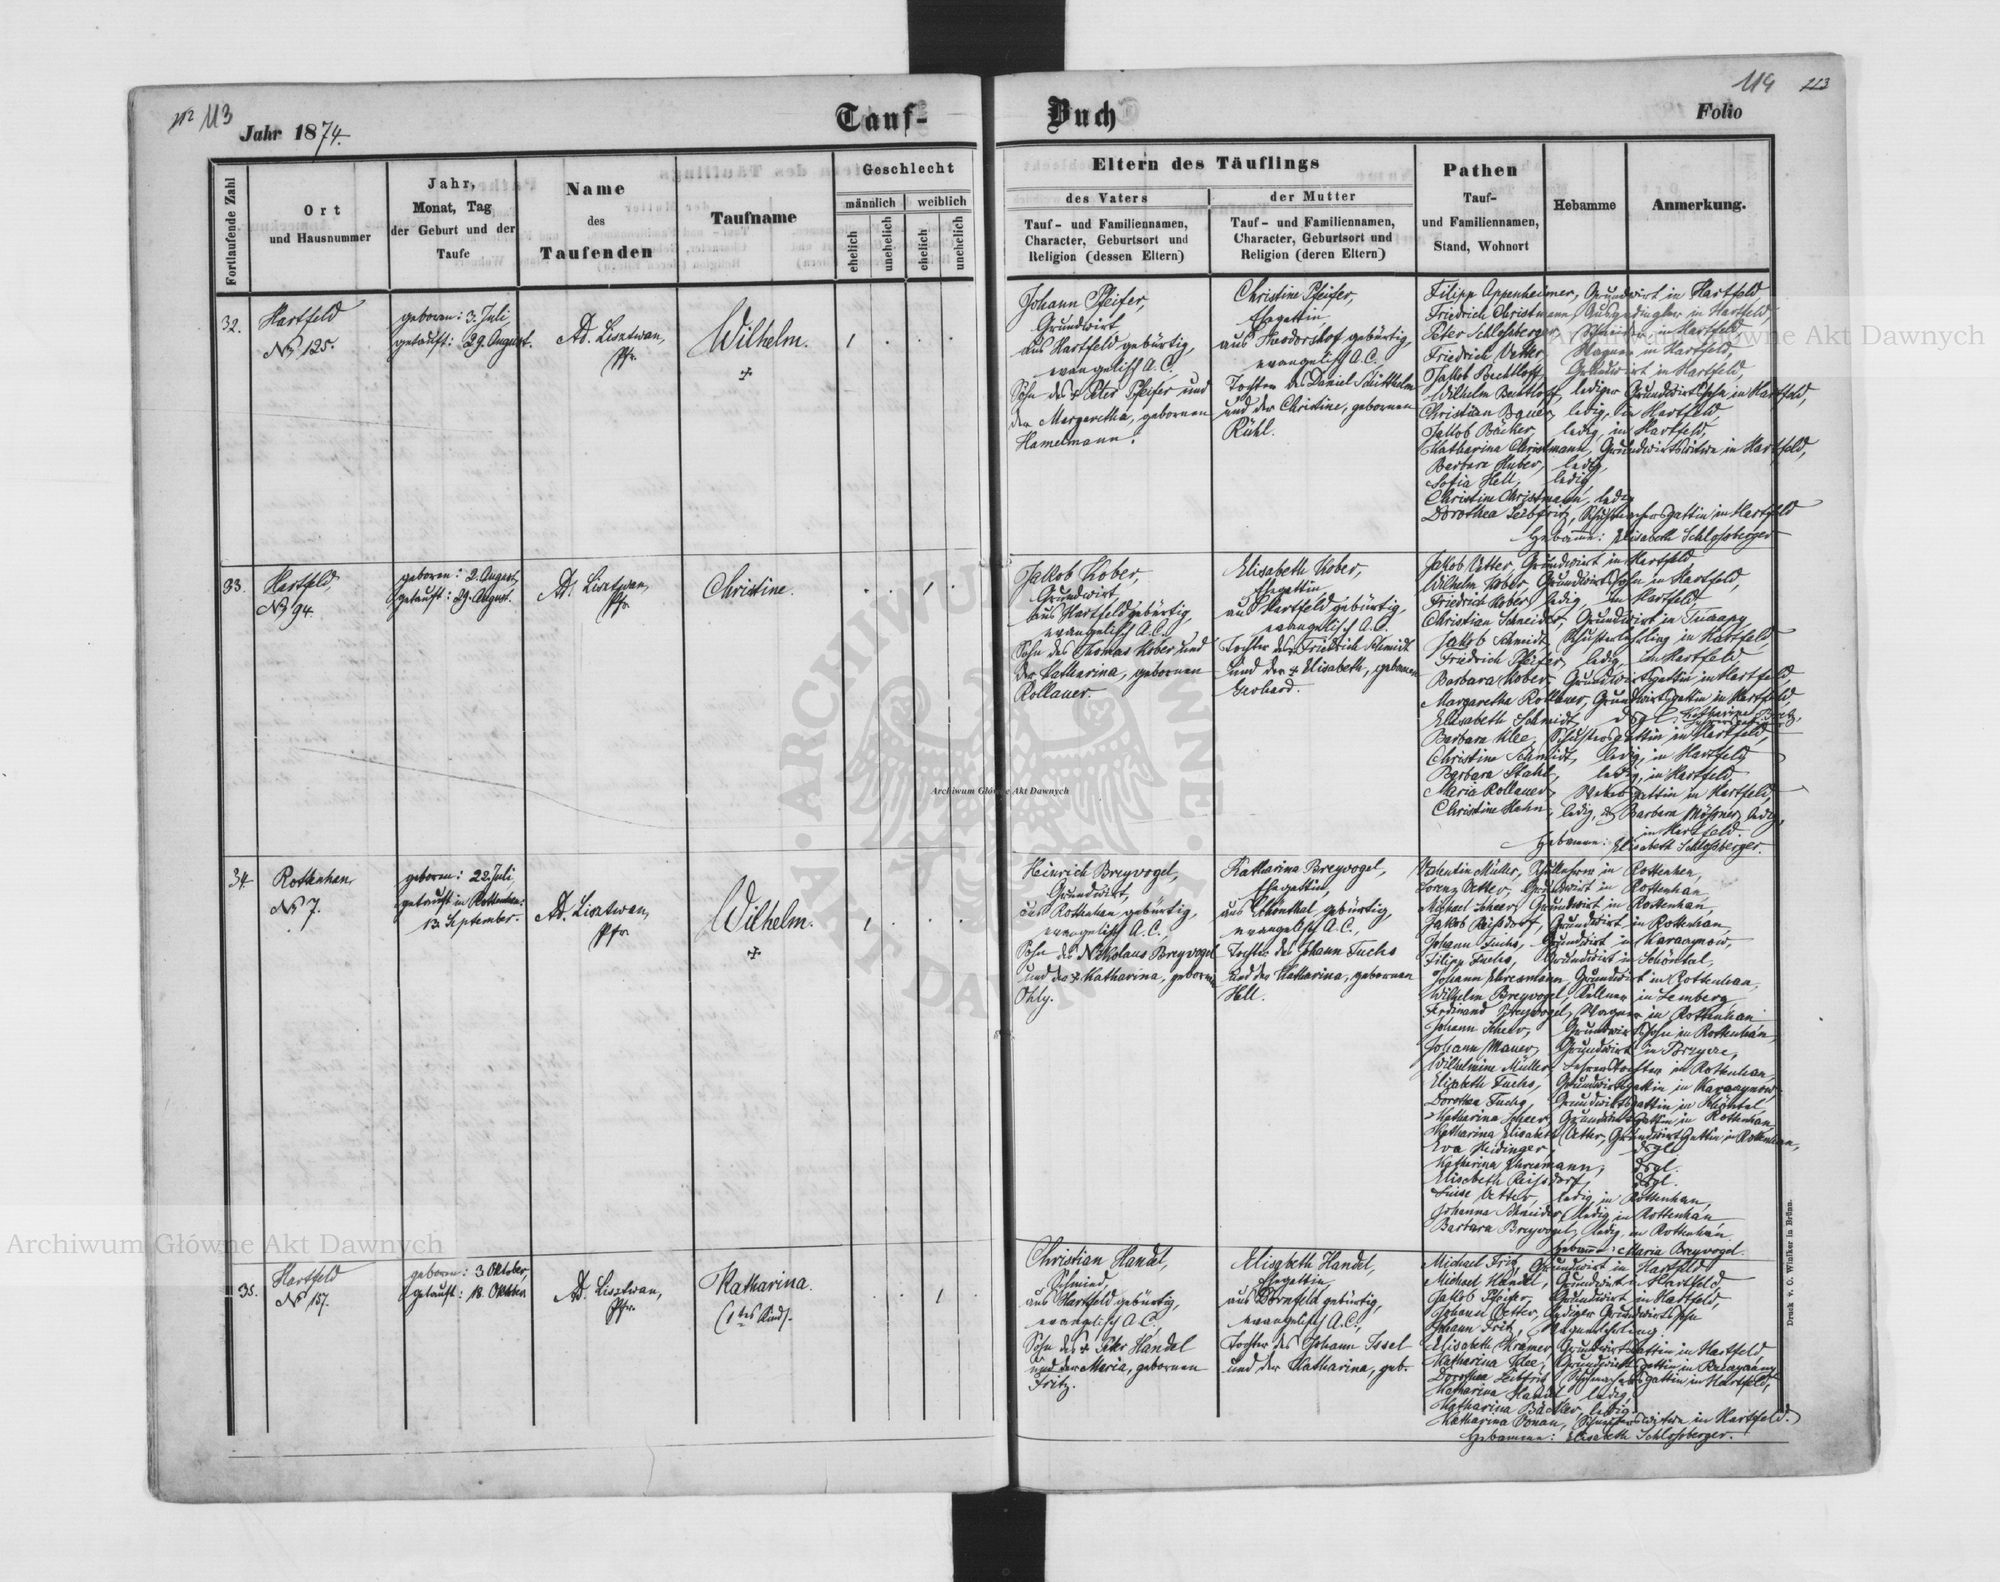 112 113
Jahr 1874.
Tauf-
Buch
114 113
Folio
Fortlaufende Zahl
Ort
und Hausnummer
Jahr,
Monat, Tag
der Geburt und der
Taufe
Name
des
Taufenden
Taufname
Geschlecht
männlich
weiblich
ehelich
unehelich
ehelich
unehelich
Eltern des Täuflings
des Vaters
Tauf- und Familiennamen,
Character, Geburtsort und
Religion (dessen Eltern)
der Mutter
Tauf- und Familiennamen,
Character, Geburtsort und
Religion (deren Eltern)
Pathen
Tauf-
und Familiennamen,
Stand, Wohnort
Hebamme
Anmerkung.
32.
Hartfeld
No 125.
geboren: 3. Juli
getauft: 29. August.
Ad. Lisztwan,
Pfr.
Wilhelm.
1
Johann Pfeifer,
Grundwirt
aus Hartfeld gebürtig,
evangelisch A.C.
Sohn des + Peter Pfeifer und
der Margaretha, gebornen
Hamelmann.
Christine Pfeifer,
Ehegattin
evangelisch A.C.
Tochter des Daniel
und der Christine, gebornen
Rühl.
Filipp Oppenheimer, Grundwirt in Hartfeld,
Friedrich Christmann, in Hartfeld,
Peter Schlossberger, in Hartfeld,
Friedrich Vetter, Wagner in Hartfeld,
Jakob Bechtloff, Grundwirt in Hartfeld
Wilhelm Bechtloff, lediger Grundwirtssohn in Hartfeld,
Christian Bauer, ledig, in Hartfeld
Jakob Bäcker, ledig, in Hartfeld,
Katharina Christmann, Grundwirtswitwe in Hartfeld,
Barbara Huber, ledig,
Sofia Hell, ledig,
Christine Christmann, ledig
Dorothea Leibfritz, gattin in Hartfeld
Hebamme: Elisabeth Schlossberger
33.
Hartfeld,
No 94.
geboren: 2. August,
getauft: 29. August.
Ad. Lisztwan,
Pfr.
Christine.
1
Jakob Kober,
Grundwirt,
aus Hartfeld gebürtig,
evangelisch A.C.
Sohn des Thomas Kober und
der Katharina, gebornen
Rollauer.
Elisabeth Kober,
Ehegattin
aus Hartfeld gebürtig,
evangelisch A.C.
Tochter des Friedrich Schmidt
und der + Elisabeth, gebornen
Jakob Vetter, Grundwirt in Hartfeld,
Wilhelm Kober, Grundwirtssohn in Hartfeld,
Friedrich Kober, ledig, in Hartfeld
Christian Schneider, Grundwirt in
Jakob Schmidt, Schusterlehrling in Hartfeld,
Friedrich Pfeifer, ledig, in Hartfeld
Barbara Kober, Grundwirtsgattin in Hartfeld,
Margaretha Rollauer, Grundwirtsgattin in Hartfeld,
Elisabeth Schmidt, Katharina
Barbara Klee, Schustersgattin in Hartfeld,
Christine Schmidt, ledig, in Hartfeld
Barbara Stahl, ledig, in Hartfeld,
Maria Rollauer, gattin in Hartfeld,
Christine Hahn, ledig, Barbara ledig,
in Hartfeld.
Hebamme: Elisabeth Schlossberger.
34.
Rottenhan
No 7.
geboren: 22. Juli
getauft in Rottenhan:
13. September.
Ad. Lisztwan,
Pfr.
Wilhelm.
1
Heinrich Breyvogel,
Grundwirt,
aus Rottenhan gebürtig,
evangelisch A.C.
Sohn des Nikolaus Breyvogel
und der + Katharina, gebornen
Ohly.
Katharina Breyvogel,
Ehegattin,
aus Schönthal gebürtig,
evangelisch A.C.,
Tochter des Johann Fuchs
und der Katharina, gebornen
Hell.
Valentin Müller, in Rottenhan,
Lorenz Vetter, Grundwirt in Rottenhan,
Michael Scheer, Grundwirt in Rottenhan,
Jakob Reissdorf, Grundwirt in Rottenhan,
Johann Fuchs, Grundwirt in Karaczynow,
Filipp Fuchs, Grundwirt in Schöntal,
Johann Ehresmann, Grundwirt in Rottenhan,
Wilhelm Breyvogel, Kellner in Lemberg,
Ferdinand Breyvogel, Wagner in Rottenhan
Johann Scheer, Grundwirtssohn in Rottenhan,
Johann Mauer, Grundwirt in
Wilhelmine Müller, Lehrerstochter in Rottenhan,
Elisabeth Fuchs, Grundwirtsgattin in Karaczynow,
Dorothea Fuchs, Grundwirtsgattin in Schöntal,
Katharina Scheer, Grundwirtsgattin in Rottenhan,
Katharina Elisabeth Vetter, Grundwirtsgattin in Rottenhan,
Eva Heidinger, dsgl.
Katharina Ehresmann, dsgl.
Elisabeth Reissdorf, dsgl.
Luise Vetter, ledig, in Rottenhan,
Johanna Schneider, ledig in Rottenhan
Barbara Breyvogel, ledig, in Rottenhan.
Hebamme: Maria Breyvogel.
35.
Hartfeld
No 137.
geboren: 3 Oktober,
getauft: 18. Oktober
Ad. Lisztwan,
Pfr.
Katharina.
(1tes Kind).
1
Christian Handel,
Schmied,
aus Hartfeld gebürtig,
evangelisch A.C.,
Sohn des + Peter Handel
und der Maria, gebornen
Fritz.
Elisabeth Handel,
Ehegattin,
aus Dornfeld gebürtig,
evangelisch A.C.,
Tochter des Johann Issel
und der Katharina, geb.
Michael Fritz, Grundwirt in Hartfeld
Michael Handel, Grundwirt in Hartfeld
Jakob Pfeifer, Grundwirt in Hartfeld,
Johann Vetter, lediger Grundwirtssohn
Johann Fritz,
Elisabeth Krämer, Grundwirtsgattin in Hartfeld
Katharina Klee, Grundwirtsgattin in
Dorothea Leibfritz, gattin in Hartfeld,
Katharina Handel, ledig,
Katharina Bäcker, ledig.
Katharina Donau, witwe in Hartfeld.
Hebamme: Elisabeth Schlossberger.
Druck v. C. Winiker in Brünn.
Archiwum Główne Akt Dawnych
Archiwum Główne Akt Dawnych
Archiwum Główne Akt Dawnych